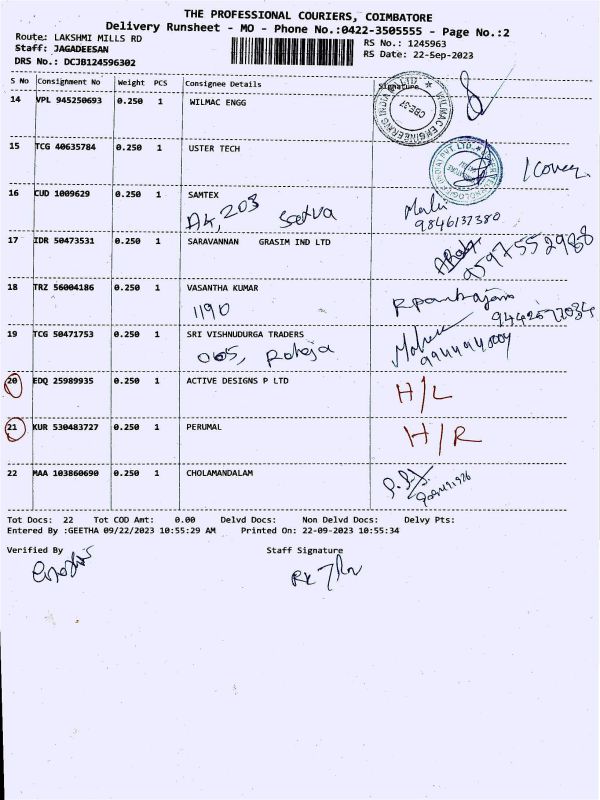 THE PROFESSIONAL COURIERS, COIMBATORE
Delivery Runsheet - MO - Phone No.:0422-3505555 - Page No.:2
Route: LAKSHMI MILLS RD
RS No.: 1245963
Staff: JAGADEESAN
RS Date: 22-Sep-2023
DRS No.: DCJB124596302
S No Consignment No Weight PCS Consignee Details Signature
14 VPL 945250693 0.250 1 WILMAC ENGG
WILMAC ENGINEERING INDIA LTD
CBE-37
15 TCG 40635784 0.250 1 USTER TECH
1 Cover
16 CUD 1009629 0.250 1 SAMTEX
A4, 203
9846137380
17 IDR 50473531 0.250 1 SARAVANNAN GRASIM IND LTD
9597552988
18 TRZ 56004186 0.250 1 VASANTHA KUMAR
1190
19 TCG 50471753 0.250 1 SRI VISHNUDURGA TRADERS
065, Raheja
20 EDQ 25989935 0.250 1 ACTIVE DESIGNS P LTD
H/L
21 KUR 530483727 0.250 1 PERUMAL
H/R
22 MAA 103860690 0.250 1 CHOLAMANDALAM
Tot Docs: 22 Tot COD Amt: 0.00 Delvd Docs: Non Delvd Docs: Delvy Pts:
Entered By :GEETHA 09/22/2023 10:55:29 AM Printed On: 22-09-2023 10:55:34
Verified By Staff Signature